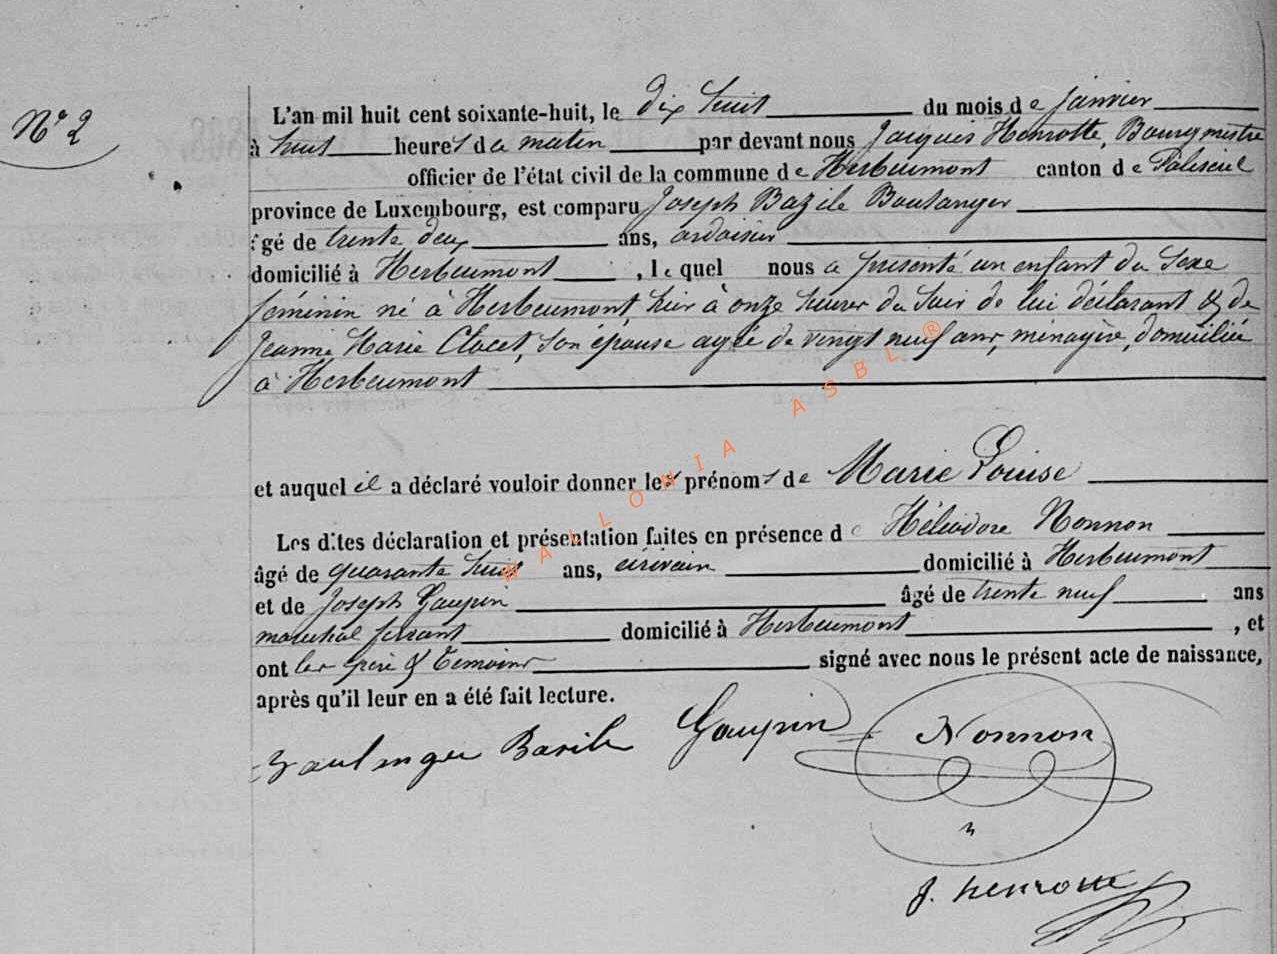 N° 2
L'an mil huit cent soixante-huit, le dix huit du mois de janvier
à huit heures du matin par devant nous Jacques Henrotte, Bourgmestre
officier de l'état civil de la commune de Herbeumont canton de Paliseul
province de Luxembourg, est comparu Joseph Bazile Boulanger
âgé de trente deux ans, ardoisier
domicilié à Herbeumont, lequel nous a présenté un enfant du sexe
féminin né à Herbeumont, hier à onze heures du soir de lui déclarant & de
Jeanne Marie Clacet, son épouse agée de vingt neuf ans, ménagère, domiciliée
à Herbeumont
et auquel il a déclaré vouloir donner les prénoms de Marie Louise
Les dites déclaration et présentation faites en présence de Héliodore Nonnon
âgé de quarante huit ans, écrivain domicilié à Herbeumont
et de Joseph Gaupin âgé de trente neuf ans
maréchal ferrant domicilié à Herbeumont, et
ont les père & témoins signé avec nous le présent acte de naissance,
après qu'il leur en a été fait lecture.
Boulanger Basile Gaupin Nonnon
J. Henrotte
WALLONIA ASBL ®